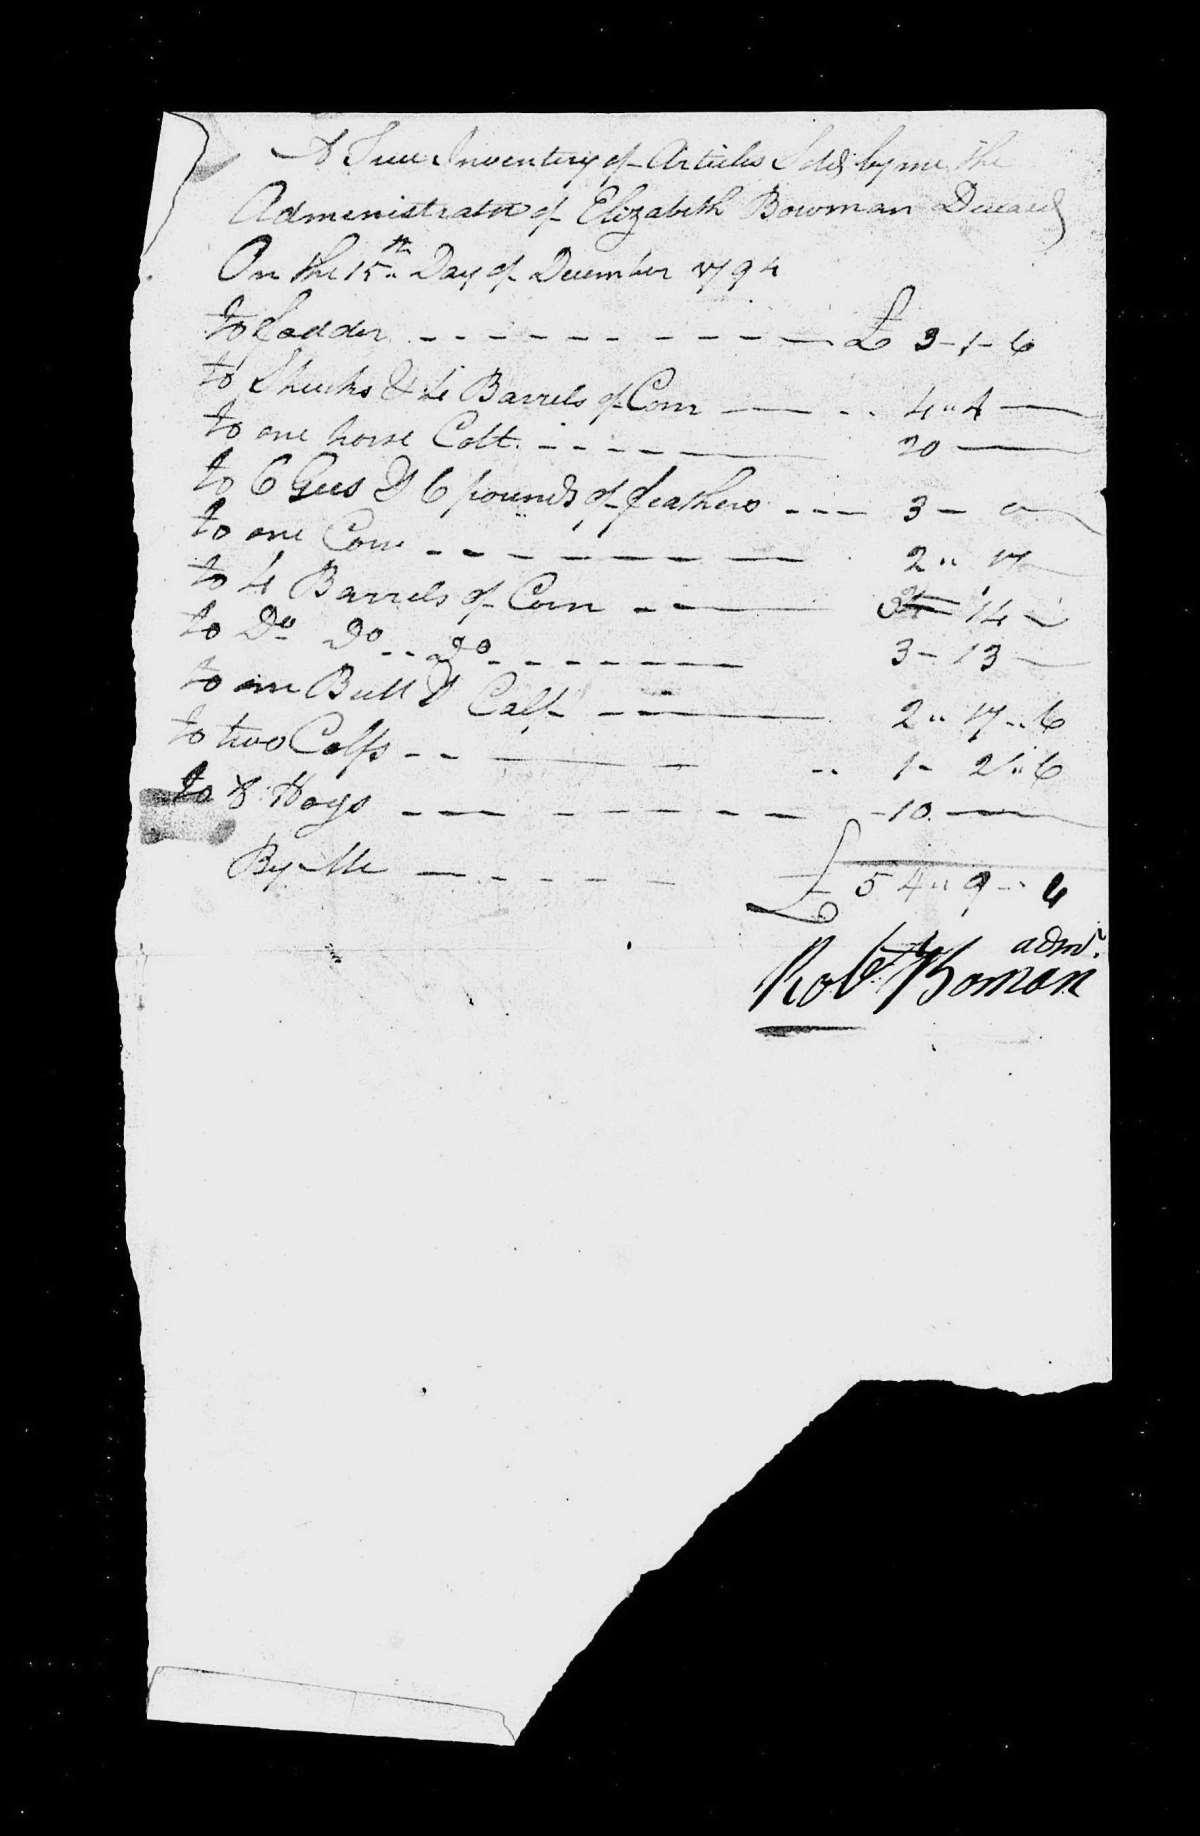 A True Inventory of Articles Sold by me the
Administrator of Elizabeth Bowman Deceasd
On the 15th Day of December 1794
to fodder £ 3-1-6
to Shucks & 4 Barrels of Corn 4"4
to one horse Colt 20
to 6 Gees & 6 pounds of feathers 3 - 0
to one Cow 2 " 17
to 4 Barrels of Corn 14
to Do Do Do 3 - 13
to one Bull & Calf 2 " 17 " 6
to two Calfs 1 - 2 " 6
to 8 Hogs 10
By Me £ 54 " 9 " 6
admr.
Robt Boman